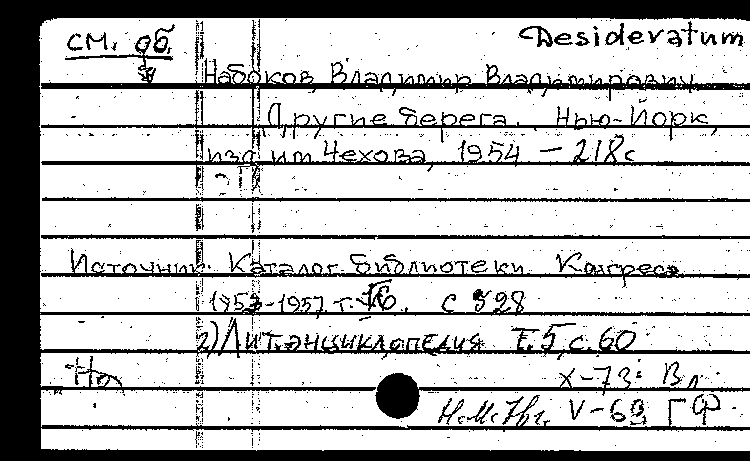 см. об.
Desideratum
Набоков, Владимир Владимирович
Другие берега. Нью-Йорк,
изд им Чехова, 1954 – 218с
Источник: Каталог библиотеки Конгресса
1953-1957. т. с 528
2) Лит. энциклопедия Т.5, с. 60
X-73: Вл.
V-69 ГФ